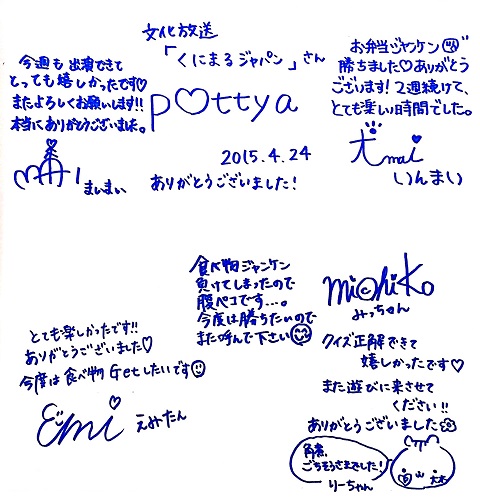 文化放送
「くにまるジャパン」さん
p♡ttya
2015.4.24
ありがとうございました!
今週も出演できて
とっても嬉しかったです♡
またよろしくお願いします!!
本当にありがとうございました。
まいまい
お弁当ジャンケン
勝ちました♡ありがとう
ございます!2週続けて、
とても楽しい時間でした。
犬mai
いんまい
食べ物ジャンケン
負けてしまったので
腹ペコです…。
今度は勝ちたいので
また呼んで下さい
michiko
みっちゃん
クイズ正解できて
嬉しかったです♡
また遊びに来させて
ください!!
ありがとうございました
角煮、
ごちそうさまでした!
りーちゃん
とても楽しかったです!!
ありがとうございました♡
今度は食べ物Getしたいです
Emi
えみたん